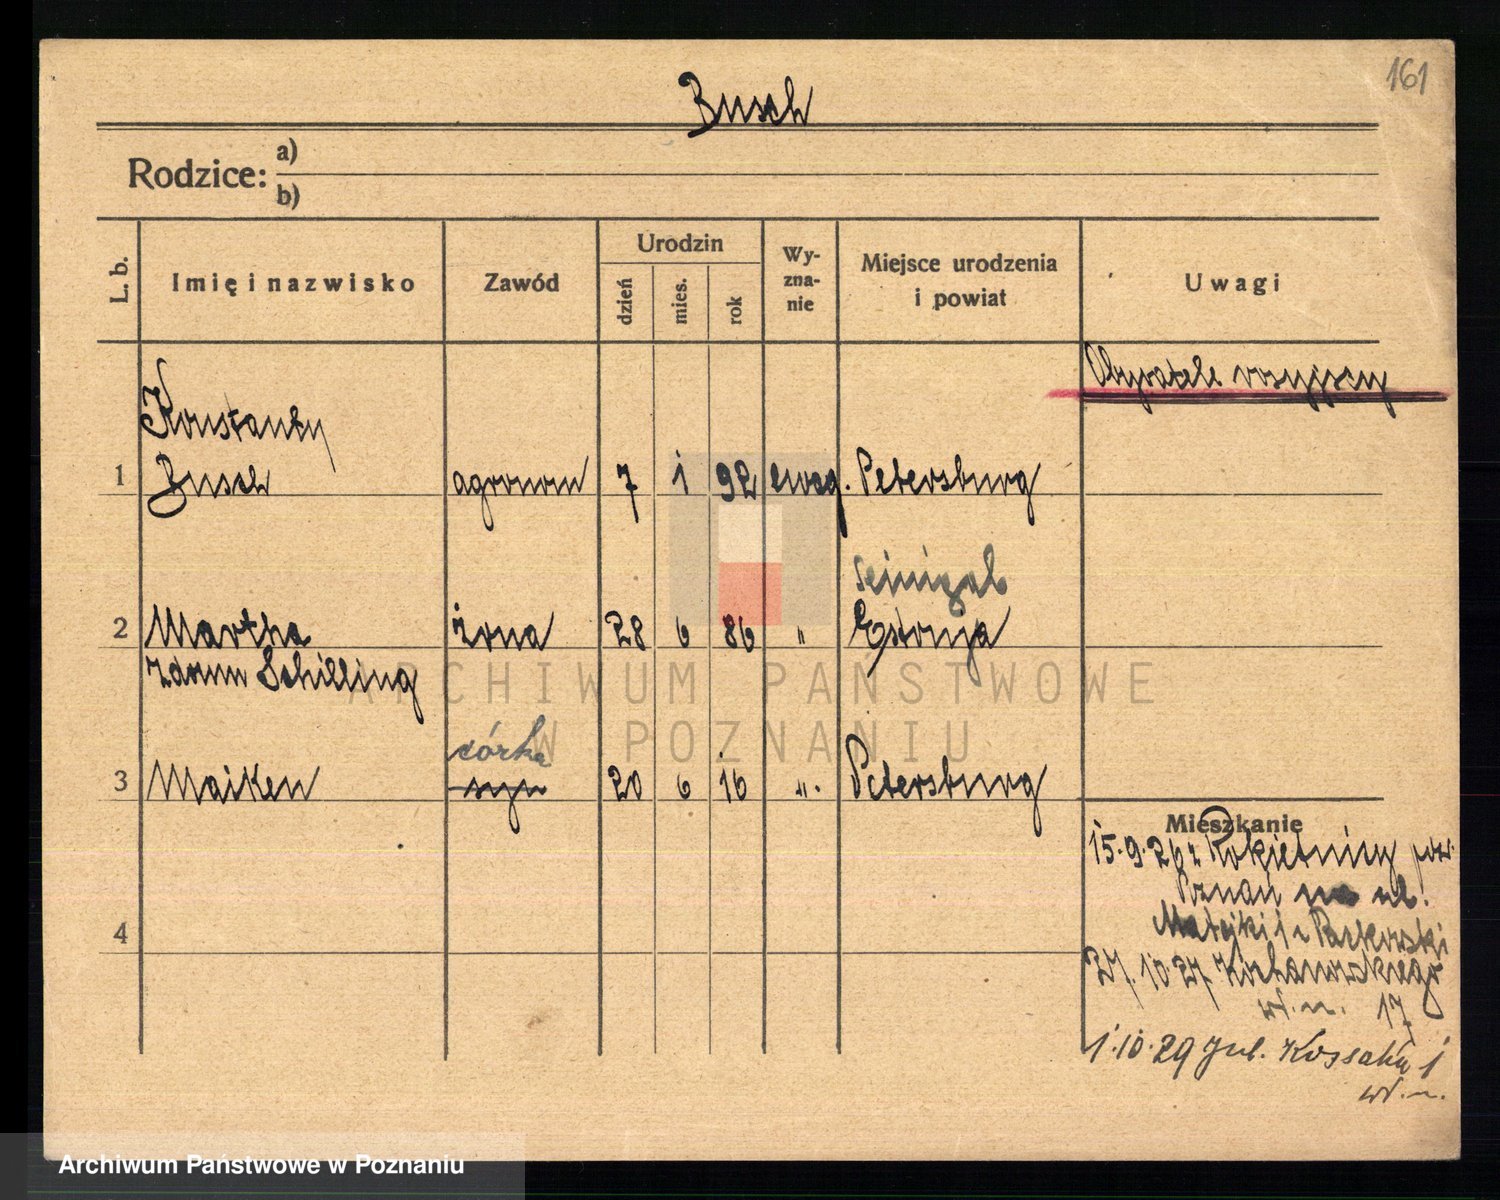 161
Busch
Rodzice: a)
b)
L. b.
Imię i nazwisko
Zawód
Urodzin
dzień
mies.
rok
Wy-
zna-
nie
Miejsce urodzenia
i powiat
Uwagi
Obywatele rosyjscy
Konstanty
1 Busch agronom 7 1 92 ewag. Petersburg
2 Martha żona 28 6 86 " Estonja
zdomu Schilling
córka
3 Maiken syn 20 6 16 ". Petersburg
4
Mieszkanie
15.9.26 z Rokietnicy pow.
Poznań na ul.
Matejki 1
27.10.27 Kochanowskiego
17
1.10.29 Jul. Kossaka 1
ARCHIWUM PAŃSTWOWE
W POZNANIU
Archiwum Państwowe w Poznaniu